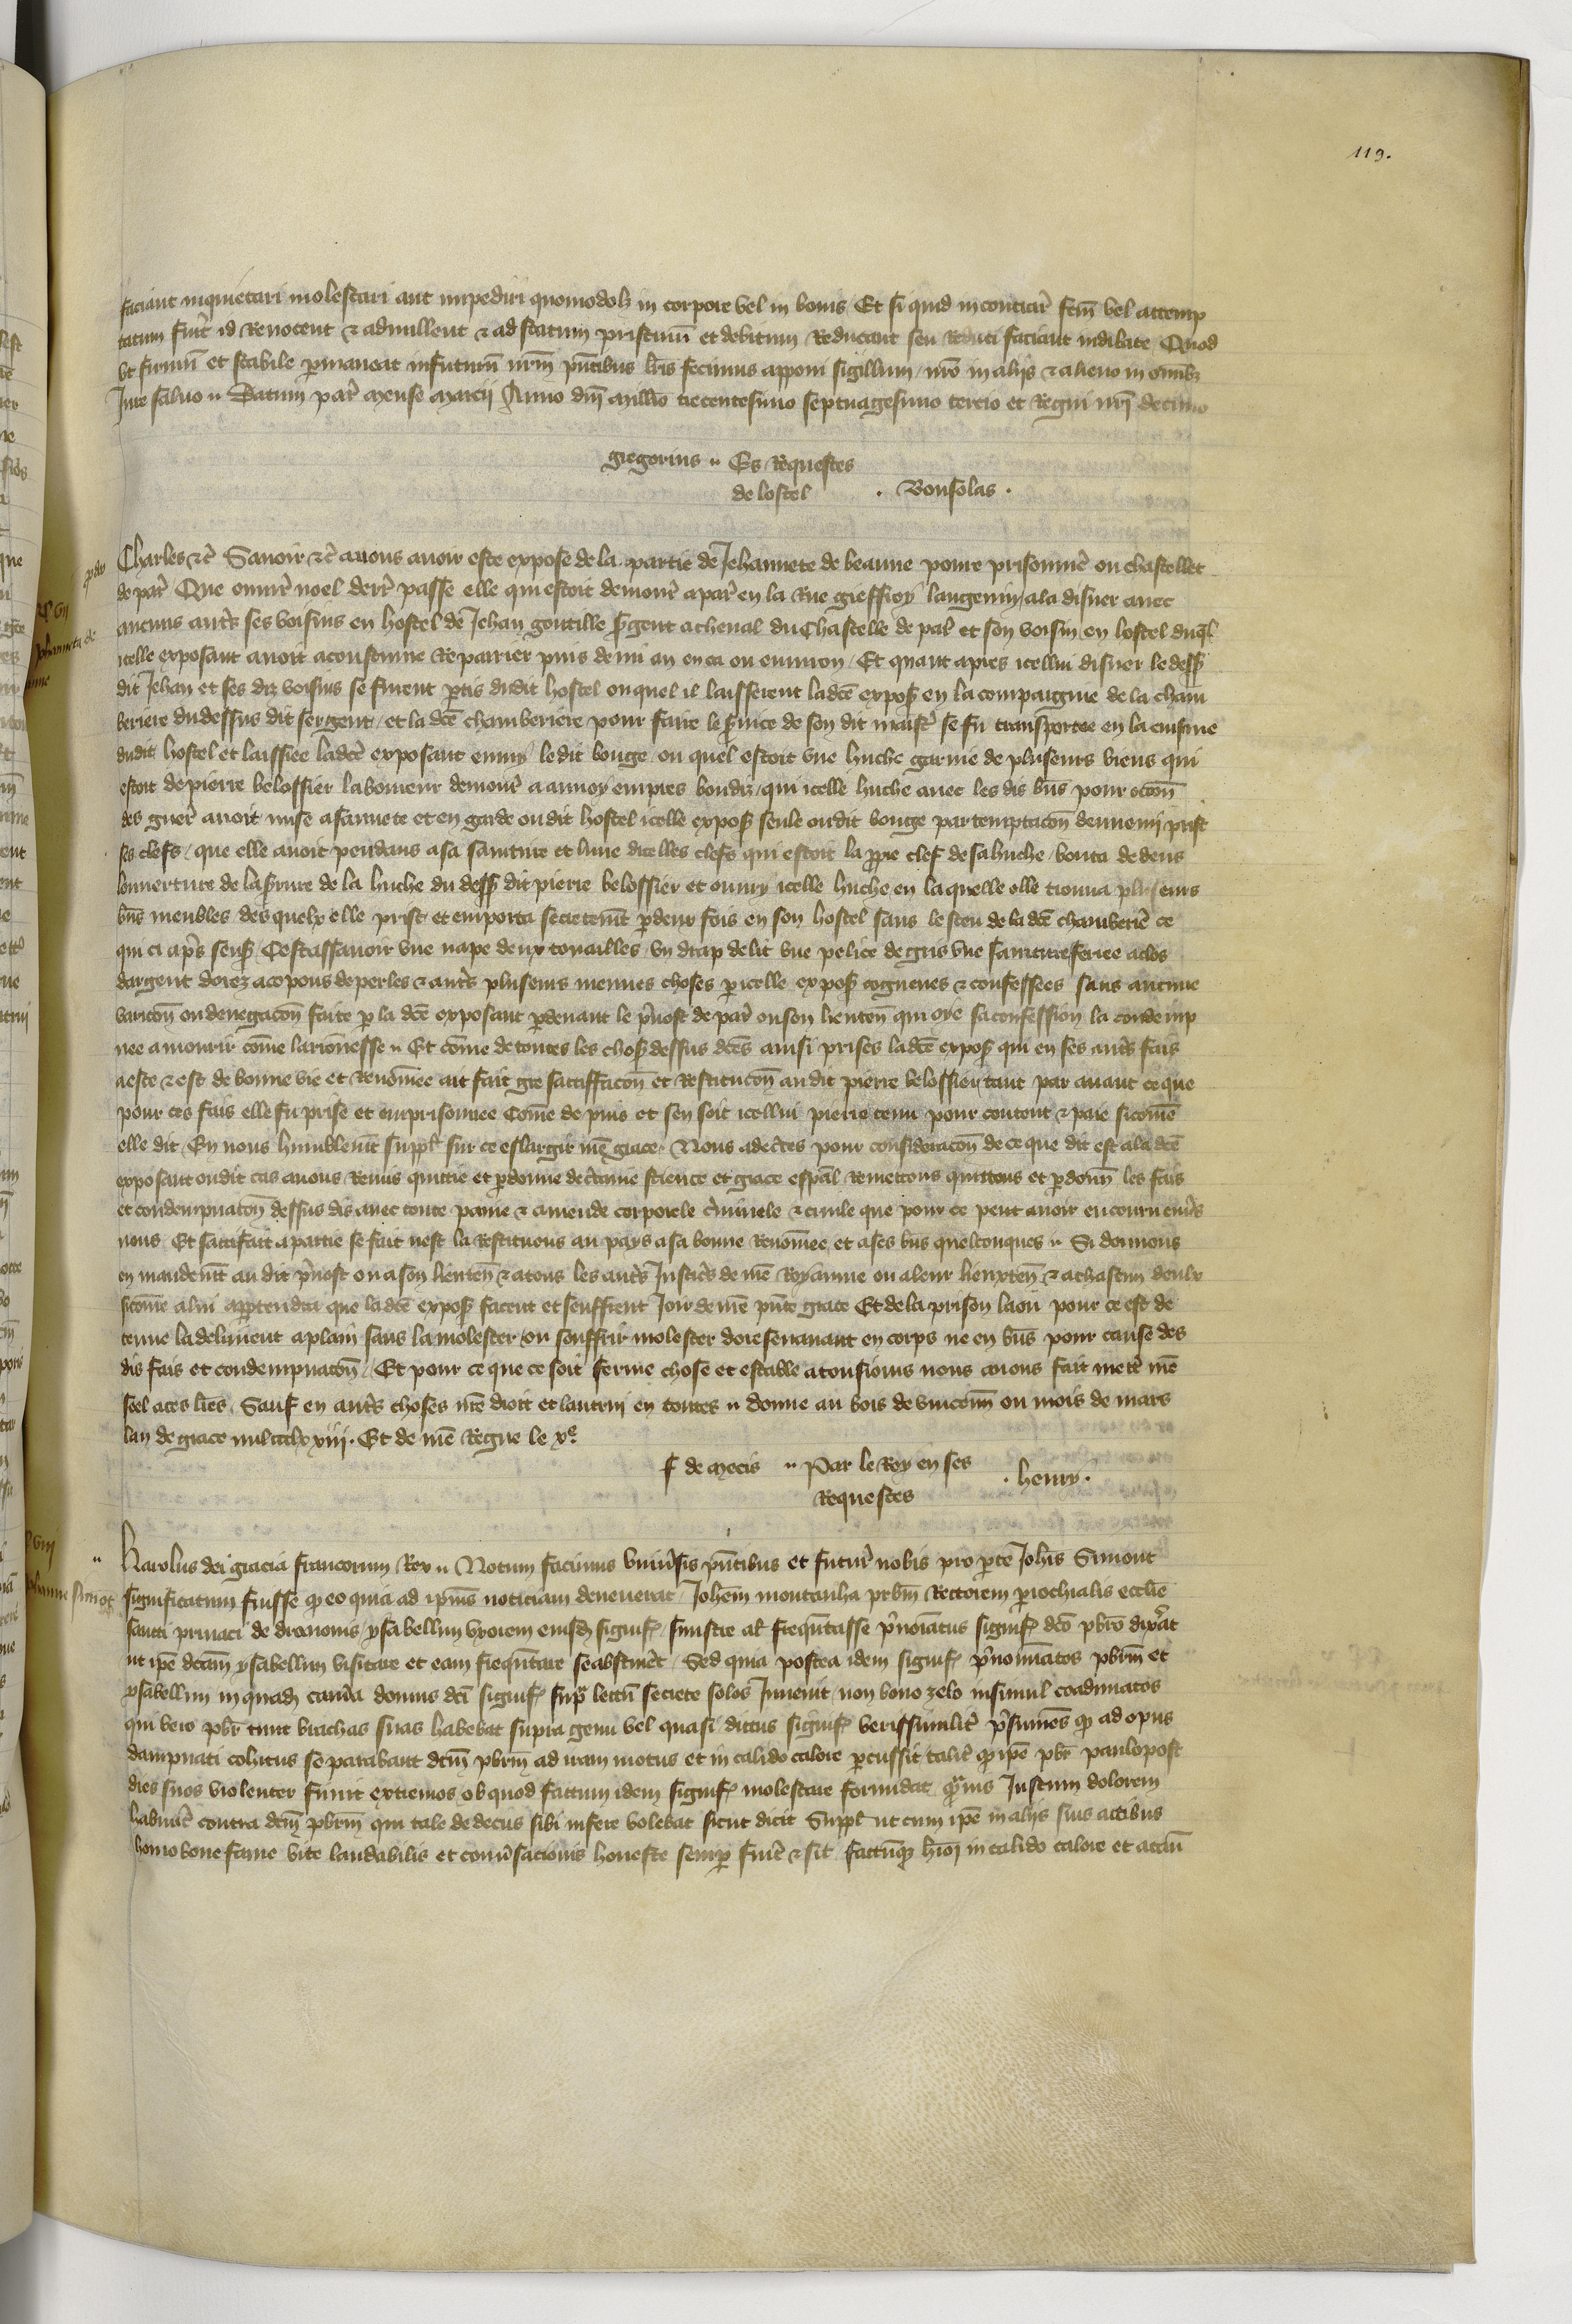 119.
faciant inquietari molestari aut impediri quomodolz in corpore vel in bonis Et si quid in contrar̃ fcm̃ vel attemp
tatum fuer̃t id Revocent & adnullent & ad statum pristinũ et debitum Reducant seu reduci faciant indilate Quod
ut firmũ et stabile ꝑmaneat in futurũ nr̃m pñtibus lr̃is fecimus apponi sigillum nr̃o in alijs & alieno in omĩbz
Jure salvo Datum par̃ mense marcij Anno dñi millo trecentesimo septuagesimo tercio et Regni nr̃i decimo
gregorius Es Requestes
de lostel . Bonsolas .
Charles &c̃ Savoir &c̃ avons avoir este expose de la partie de Jehannete de beaune povre prisonnier̃ ou chastellet
de par̃ Que environ noel derr̃ passe elle qui estoit demour̃ a par̃ en la Rue gieffroy langevin ala disner avec
aucuns autr̃s ses voisins en hostel de Jehan gentille sr̃gent a cheval du Chastelle de par̃ et son voisin en lostel duq̃l
icelle exposant avoit acoustume Repairier puis demi an en ca ou environ / Et quant apres icellui disner le dess̃
dit Jehan et ses diz voisins se furent ꝑtis dudit hostel ou quel il laisserent ladc̃e expos̃ en la compaignie de la cham
beriere du dessus dit sergent / et la dc̃e chamberiere pour faire le sr̃vice de son dit maistr̃ se fu transportee en la cuisine
dudit hostel et laissiee ladc̃e exposant emmy ledit bouge / ou quel estoit une huche garnie de pluseurs biens qui
estoit de pierre belossier laboureur demour̃ a aunoy empres bondiz / qui icelle huche avec les dis bñs pour occoñ
des guerr̃ avoit mise a sauvete et en garde ou dit hostel icelle expos̃ seule ou dit bouge par temptacoñ dennemi prist
ses clefs / que elle avoit pendans a sa sainture et lune dicelles clefs qui estoit la ꝓpre clef de sa huche / bouta dedens
louverture de la sr̃rure de la huche du dess̃ dit pierre belossier et ouvry icelle huche en laquelle elle trouva pluseurs
bñs meubles des quelx elle prist et emporta secretemt̃ ꝑ deux fois en son hostel sans le sceu de la dc̃e chamberier̃ ce
qui ci apr̃s sensuit Cestassavoir une nape deux touailles / un drap de lit une pelice de gris une sainture ferree a clos
dargent dorez a copons de perles & autr̃s pluseurs menues choses ꝑ icelle expos̃ cogneues & confessees sans aucune
variacoñ ou denegacoñ faite ꝑ la dc̃e exposant ꝑdevant le p̃vost de par̃ ou son lieuteñ qui oye sa confession la condemp
nee a mourir com̃e larronnesse Et com̃e de toutes les chos̃ dessus dc̃es ainsi prises ladc̃e expos̃ qui en ses autr̃s fais
a este & est de bonne vie et Renom̃ee ait fait gre satisffacoñ et Restitucoñ au dit pierre belossier / tant par avant ce que
pour ces fais elle fu prise et emprisonnee Com̃e depuis et sen soit icellui pierre tenu pour content & paie sicom̃e
elle dit En nous humblemt̃ suppl̃ sur ce eslargir nr̃e grace Nous adec̃tes pour consideracoñ de ce que dit est a la dc̃e
exposant ou dit cas avons Remis quittie et ꝑdonne de c̃taine science et grace esp̃al remettons quittons et ꝑdonñ les fais
et condempnacoñ dessus dis avec toute paine & amende corporele c̃minele & civile que pour ce peut avoir encouru envr̃s
nous Et satisfait a partie se fait nest la Restituons au pays a sa bonne Renom̃ee et a ses bñs quelconques Si donnons
en mandemt̃ au dit p̃vost ou a son lieuteñ & a tous les autr̃s Justic̃rs de nr̃e Royaume ou a leur lieuxteñ & a chascun deulx
sicom̃e a lui appartendra que la dc̃e expos̃ facent et seuffrent Joir de nr̃e pñte grace Et de la prison la ou pour ce est de
tenue la delivrent a plain sans la molester / ou souffrir molester doresenavant en corps ne en bñs pour cause des
dis fais et condempnacoñ / Et pour ce que ce soit ferme chose et estable a tousjours nous avons fait mettr̃ nr̃e
seel a ces lr̃es Sauf en autr̃s choses nr̃e droit et lautruy en toutes donne au bois de vincenñ ou mois de mars
lan de grace mil ccclxxiij. Et de nr̃e Regne le xe.
J de mecis Par le Roy en ses
Requestes . henry .
Karolus dei gracia francorum Rex Notum facimus uniṽsis pñtibus et futur̃ nobis pro ꝑte Joh̃is Simont
significatum fuisse ꝙ eo quia ad ip̃ius noticiam devenerat / Joh̃em montanha pr̃bm̃ Rectorem ꝑrochialis eccl̃ie
sancti privaci de dronomis ysabellim uxorem eiusd̃ signif̃. sinistre al̃ freq̃ntasse p̃noiatus signif̃. dc̃o pb̃ro dixer̃at
ut ip̃e dc̃am ysabellim visitare et eam freq̃ntare se abstiner̃et Sed quia postea idem signif̃. p̃nominatos pb̃rm et
ysabellim in quadã cam̃a domus dc̃i signif̃. supra lectũ secrete solos Invenit non bono zelo insimul coadunatos
qui vero pb̃r tunc brachas suas habebat supra genu vel quasi dictus signif̃. verissimilit̃ p̃sumes ꝙ ad opus
dampnati cohitus se parabant dc̃m pb̃rm ad iram motus et in calido calore ꝑcussit talit̃ ꝙ ip̃e pb̃r paulo post
dies suos violenter finivit extremos ob quod factum idem signif̃. molestare formidat q̃mvis Justum dolorem
habuer̃it contra dc̃m pb̃rm qui tale dedecus sibi inferre volebat sicut dicit Suppl̃ ut cum ip̃e in alijs suis actibus
homo bone fame vite laudabilis et conṽsacionis honeste semꝑ fuer̃it & sit factumq̃ h̃oi in calido calore et actũ